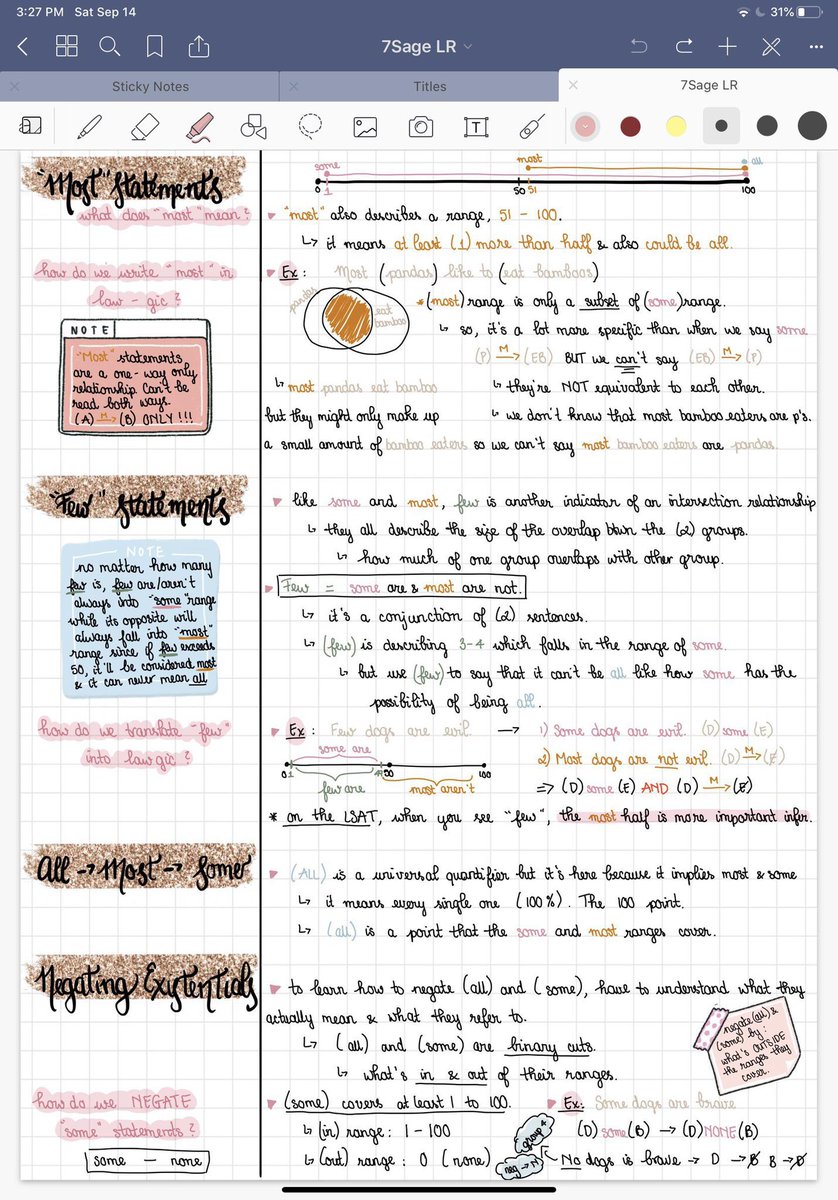 3:27 PM Sat Sep 14
31%
7Sage LR
Sticky Notes
Titles
7Sage LR
"Most" Statements
what does "most" mean?
some
most
all
0 1 50 51 100
"most" also describes a range, 51 - 100.
↳ it means at least (1) more than half & also could be all.
how do we write "most" in
law - gic?
Ex: Most (pandas) like to (eat bamboos)
pandas
eat
bamboo
*(most) range is only a subset of (some) range.
↳ so, it's a lot more specific than when we say some
(P) M→ (EB) BUT we can't say (EB) M→ (P)
↳ most pandas eat bamboo
↳ they're NOT equivalent to each other.
but they might only make up
↳ we don't know that most bamboo eaters are p's.
a small amount of bamboo eaters so we can't say most bamboo eaters are pandas.
NOTE
"Most" statements
are a one-way only
relationship. Can't be
read both ways.
(A) M→ (B) ONLY!!!
"Few" Statements
like some and most, few is another indicator of an intersection relationship
↳ they all describe the size of the overlap btwn the (2) groups.
↳ how much of one group overlaps with other group.
NOTE
no matter how many
few is, few are/aren't
always into "some" range
while its opposite will
always fall into "most"
range since if few exceeds
50, it'll be considered most
& it can never mean all
Few = some are & most are not.
↳ it's a conjunction of (2) sentences.
↳ (few) is describing 3-4 which falls in the range of some.
↳ but use (few) to say that it can't be all like how some has the
possibility of being all.
how do we translate "few"
into lawgic?
Ex: Few dogs are evil. → 1) Some dogs are evil. (D) some (E)
2) Most dogs are not evil. (D) M→ (E̸)
⇒ (D) some (E) AND (D) M→ (E̸)
some are
0 1 49 50 100
few are
most aren't
* on the LSAT, when you see "few", the most half is more important infer.
All → Most → Some
(ALL) is a universal quantifier but it's here because it implies most & some
↳ it means every single one (100%). The 100 point.
↳ (all) is a point that the some and most ranges cover.
Negating Existentials
to learn how to negate (all) and (some), have to understand what they
actually mean & what they refer to.
↳ (all) and (some) are binary cuts.
↳ what's in & out of their ranges.
negate (all) &
(some) by:
what's OUTSIDE
the ranges they
cover.
how do we NEGATE
"some" statements?
some — none
(some) covers at least 1 to 100.
↳ (in) range: 1 - 100
↳ (out) range: 0 (none)
Ex: Some dogs are brave
(D) some (B) → (D) NONE (B)
group 4
neg → N
No dogs is brave → D → B̸ B → D̸